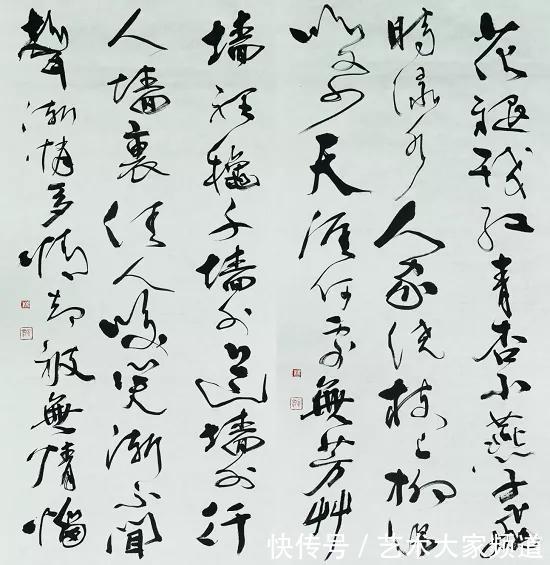 花褪残红青杏小燕子飛
時绿水人家绕枝上柳绵
吹又少天涯何處無芳艸
墙裡鞦千墙外道墙外行
人墙裏佳人咲笑渐不闻
聲渐悄多情却被無情惱
快传号 / 艺术大家频道